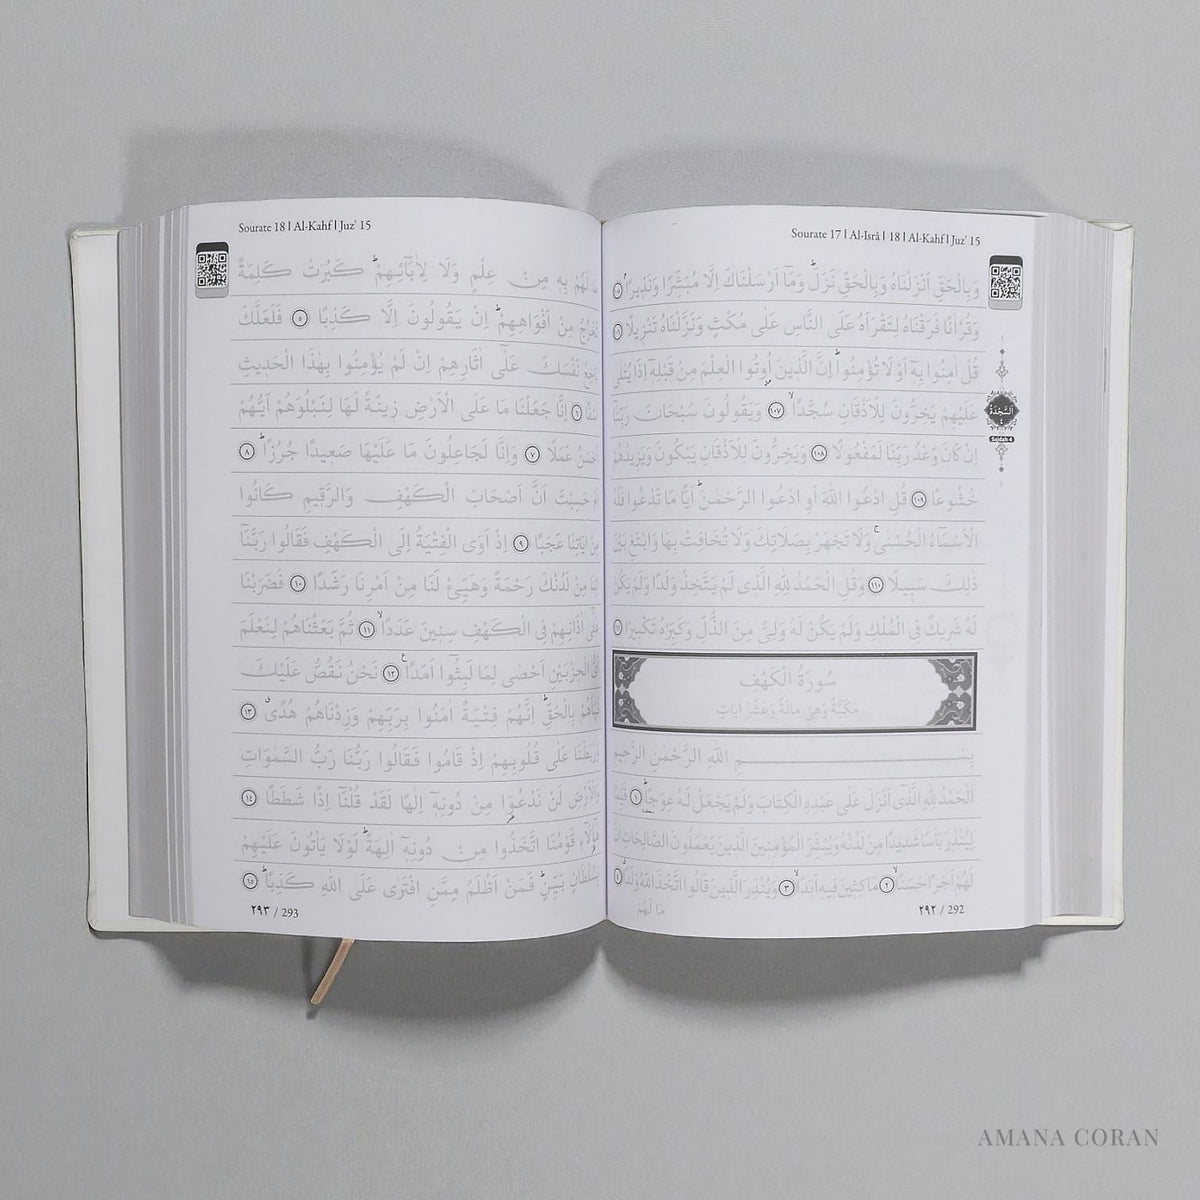 Sourate 17 | Al-Isrâ | 18 | Al-Kahf | Juz' 15
وَبِالْحَقِّ اَنْزَلْنَاهُ وَبِالْحَقِّ نَزَلَؕ وَمَٓا اَرْسَلْنَاكَ اِلَّا مُبَشِّرًا وَنَذِيرًاۢ ١٠٥
وَقُرْاٰنًا فَرَقْنَاهُ لِتَقْرَاَهُ عَلَى النَّاسِ عَلٰى مُكْثٍ وَنَزَّلْنَاهُ تَنْزِيلًا ١٠٦
قُلْ اٰمِنُوا بِهٖٓ اَوْ لَا تُؤْمِنُواؕ اِنَّ الَّذِينَ اُوتُوا الْعِلْمَ مِنْ قَبْلِهٖٓ اِذَا يُتْلٰى
عَلَيْهِمْ يَخِرُّونَ لِلْاَذْقَانِ سُجَّدًاۙ ١٠٧ وَيَقُولُونَ سُبْحَانَ رَبِّنَٓا
اِنْ كَانَ وَعْدُ رَبِّنَا لَمَفْعُولًا ١٠٨ وَيَخِرُّونَ لِلْاَذْقَانِ يَبْكُونَ وَيَزِيدُهُمْ
خُشُوعًا ١٠٩ قُلِ ادْعُوا اللّٰهَ اَوِ ادْعُوا الرَّحْمٰنَؕ اَيًّا مَا تَدْعُوا فَلَهُ
الْاَسْمَٓاءُ الْحُسْنٰىۚ وَلَا تَجْهَرْ بِصَلَاتِكَ وَلَا تُخَافِتْ بِهَا وَابْتَغِ بَيْنَ
ذٰلِكَ سَبِيلًا ١١٠ وَقُلِ الْحَمْدُ لِلّٰهِ الَّذِى لَمْ يَتَّخِذْ وَلَدًا وَلَمْ يَكُنْ
لَهُ شَرِيكٌ فِى الْمُلْكِ وَلَمْ يَكُنْ لَهُ وَلِىٌّ مِنَ الذُّلِّ وَكَبِّرْهُ تَكْبِيرًا ١١١
سُورَةُ الْكَهْفِ
مَكِّيَّةٌ وَهِىَ مِائَةٌ وَعَشْرُ اٰيَاتٍ
بِسْمِ اللّٰهِ الرَّحْمٰنِ الرَّحِيمِ
اَلْحَمْدُ لِلّٰهِ الَّذِٓى اَنْزَلَ عَلٰى عَبْدِهِ الْكِتَابَ وَلَمْ يَجْعَلْ لَهُ عِوَجًاؕ ١ قَيِّمًا
لِيُنْذِرَ بَاْسًا شَدِيدًا مِنْ لَدُنْهُ وَيُبَشِّرَ الْمُؤْمِنِينَ الَّذِينَ يَعْمَلُونَ الصَّالِحَاتِ اَنَّ
لَهُمْ اَجْرًا حَسَنًاۙ ٢ مَاكِثِينَ فِيهِ اَبَدًاۙ ٣ وَيُنْذِرَ الَّذِينَ قَالُوا اتَّخَذَ اللّٰهُ وَلَدًاؗ ٤
مَا لَهُمْ
٢٩٢ / 292
اَلسَّجْدَةُ
٤
Sajdah 4
Sourate 18 | Al-Kahf | Juz' 15
مَا لَهُمْ بِهِ مِنْ عِلْمٍ وَلَا لِاٰبَٓائِهِمْؕ كَبُرَتْ كَلِمَةً
تَخْرُجُ مِنْ اَفْوَاهِهِمْؕ اِنْ يَقُولُونَ اِلَّا كَذِبًا ٥ فَلَعَلَّكَ
بَاخِعٌ نَفْسَكَ عَلٰٓى اٰثَارِهِمْ اِنْ لَمْ يُؤْمِنُوا بِهٰذَا الْحَدِيثِ
اَسَفًا ٦ اِنَّا جَعَلْنَا مَا عَلَى الْاَرْضِ زِينَةً لَهَا لِنَبْلُوَهُمْ اَيُّهُمْ
اَحْسَنُ عَمَلًا ٧ وَاِنَّا لَجَاعِلُونَ مَا عَلَيْهَا صَعِيدًا جُرُزًاؕ ٨
اَمْ حَسِبْتَ اَنَّ اَصْحَابَ الْكَهْفِ وَالرَّقِيمِ كَانُوا
مِنْ اٰيَاتِنَا عَجَبًا ٩ اِذْ اَوَى الْفِتْيَةُ اِلَى الْكَهْفِ فَقَالُوا رَبَّنَٓا
اٰتِنَا مِنْ لَدُنْكَ رَحْمَةً وَهَيِّئْ لَنَا مِنْ اَمْرِنَا رَشَدًا ١٠ فَضَرَبْنَا
عَلٰٓى اٰذَانِهِمْ فِى الْكَهْفِ سِنِينَ عَدَدًاۙ ١١ ثُمَّ بَعَثْنَاهُمْ لِنَعْلَمَ
اَىُّ الْحِزْبَيْنِ اَحْصٰى لِمَا لَبِثُٓوا اَمَدًاࣖ ١٢ نَحْنُ نَقُصُّ عَلَيْكَ
نَبَاَهُمْ بِالْحَقِّؕ اِنَّهُمْ فِتْيَةٌ اٰمَنُوا بِرَبِّهِمْ وَزِدْنَاهُمْ هُدًىۗ ١٣
وَرَبَطْنَا عَلٰى قُلُوبِهِمْ اِذْ قَامُوا فَقَالُوا رَبُّنَا رَبُّ السَّمٰوَاتِ
وَالْاَرْضِ لَنْ نَدْعُوَا۬ مِنْ دُونِهٖٓ اِلٰهًا لَقَدْ قُلْنَٓا اِذًا شَطَطًا ١٤
هٰٓؤُ۬لَٓاءِ قَوْمُنَا اتَّخَذُوا مِنْ دُونِهٖٓ اٰلِهَةًؕ لَوْلَا يَاْتُونَ عَلَيْهِمْ
بِسُلْطَانٍ بَيِّنٍؕ فَمَنْ اَظْلَمُ مِمَّنِ افْتَرٰى عَلَى اللّٰهِ كَذِبًاؕ ١٥
٢٩٣ / 293
AMANA CORAN